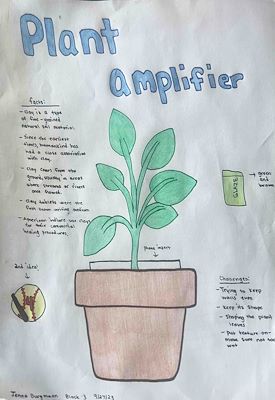 Plant
amplifier
facts:
- Clay is a type
of fine-grained
natural soil material.
- Since the earliest
times, humankind has
had a close association
with clay.
- Clay comes from the
ground, usually in areas
where streams or rivers
once flowed.
- Clay tablets were the
first known writing medium
- American Indians use clays
for their ceremonial
healing procedures.
2nd idea!
phone insert
green
and
brown
Challenges:
- Trying to keep
walls even
- Keep its shape
- Shaping the plant
leaves
- Put texture on-
make sure not too
wet
Jenna
Block 3 9/27/23